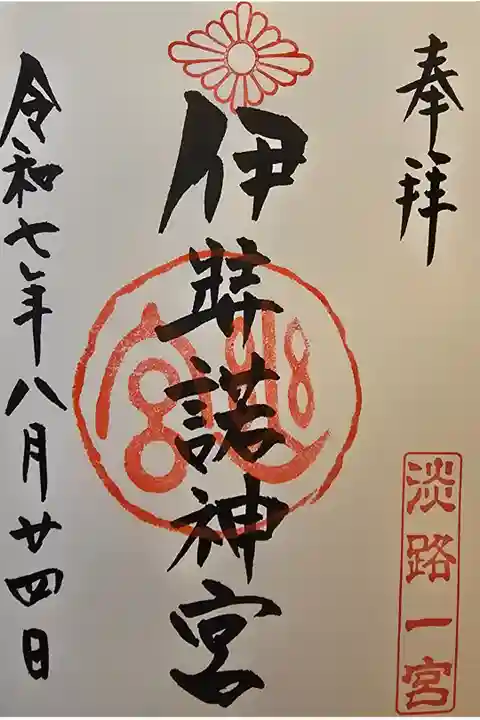 奉拝
淡路一宮
伊弉諾神宮
令和七年八月廿四日